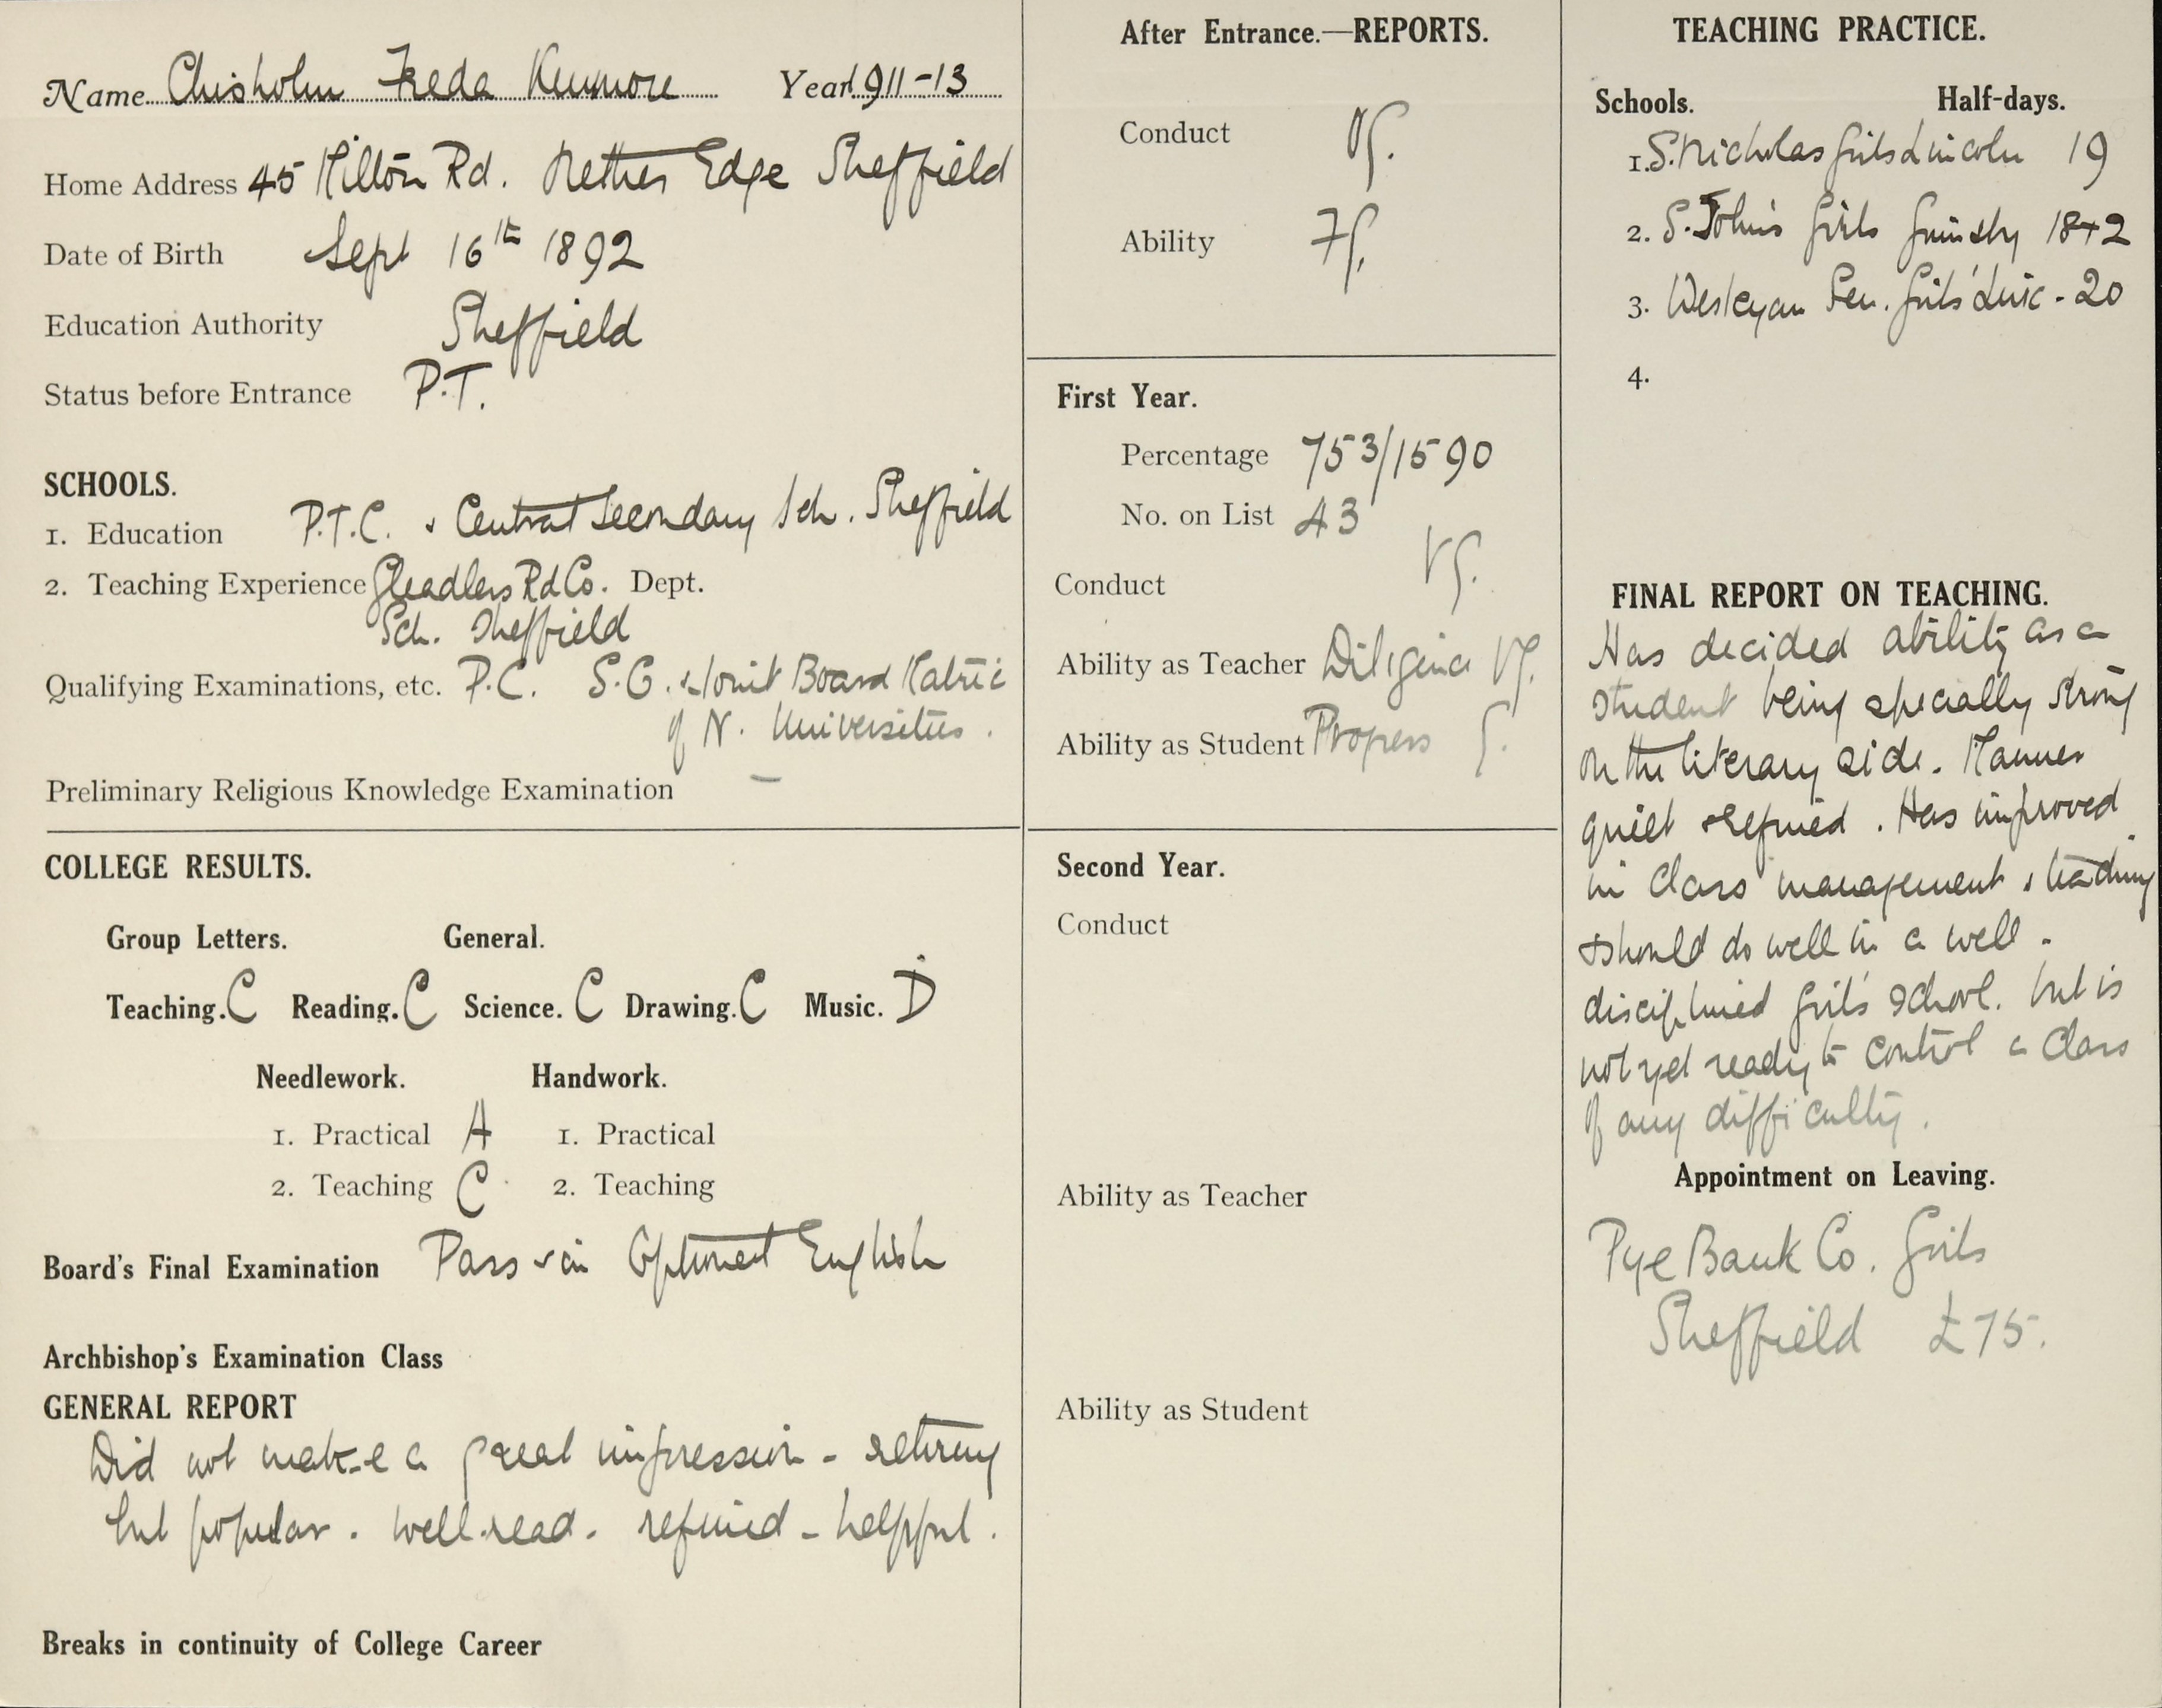 Name Chisholm Freda Kenmore Year 1911-13
Home Address 45 Kilton Rd. Nether Edge Sheffield
Date of Birth Sept 16th 1892
Education Authority Sheffield
Status before Entrance P.T.
SCHOOLS.
1. Education P.T.C. & Central Secondary Sch. Sheffield
2. Teaching Experience Gleadless Rd Co. Dept.
Sch. Sheffield
Qualifying Examinations, etc. P.C. S.C. & Joint Board Matric
of N. Universities.
Preliminary Religious Knowledge Examination —
COLLEGE RESULTS.
Group Letters. General.
Teaching. C Reading. C Science. C Drawing. C Music. D
Needlework. Handwork.
1. Practical A 1. Practical
2. Teaching C 2. Teaching
Board's Final Examination Pass & in Optional English
Archbishop's Examination Class
GENERAL REPORT
Did not make a great impression - retiring
but popular. well-read - refined - helpful.
Breaks in continuity of College Career
After Entrance.—REPORTS.
Conduct
Ability
First Year.
Percentage 753/1590
No. on List 43
Conduct VG.
Ability as Teacher Diligence VG.
Ability as Student Progress G.
Second Year.
Conduct
Ability as Teacher
Ability as Student
TEACHING PRACTICE.
Schools. Half-days.
1. S. Nicholas Girls Lincoln 19
2. S. John's Girls Grimsby 18+2
3. Wesleyan Sen. Girls' Linc - 20
4.
FINAL REPORT ON TEACHING.
Has decided ability as a
student being specially strong
on the literary side. Manner
quiet & refined. Has improved
in class management & teaching
& should do well in a well-
disciplined girls' school. but is
not yet ready to control a class
of any difficulty.
Appointment on Leaving.
Pye Bank Co. Girls
Sheffield £75.